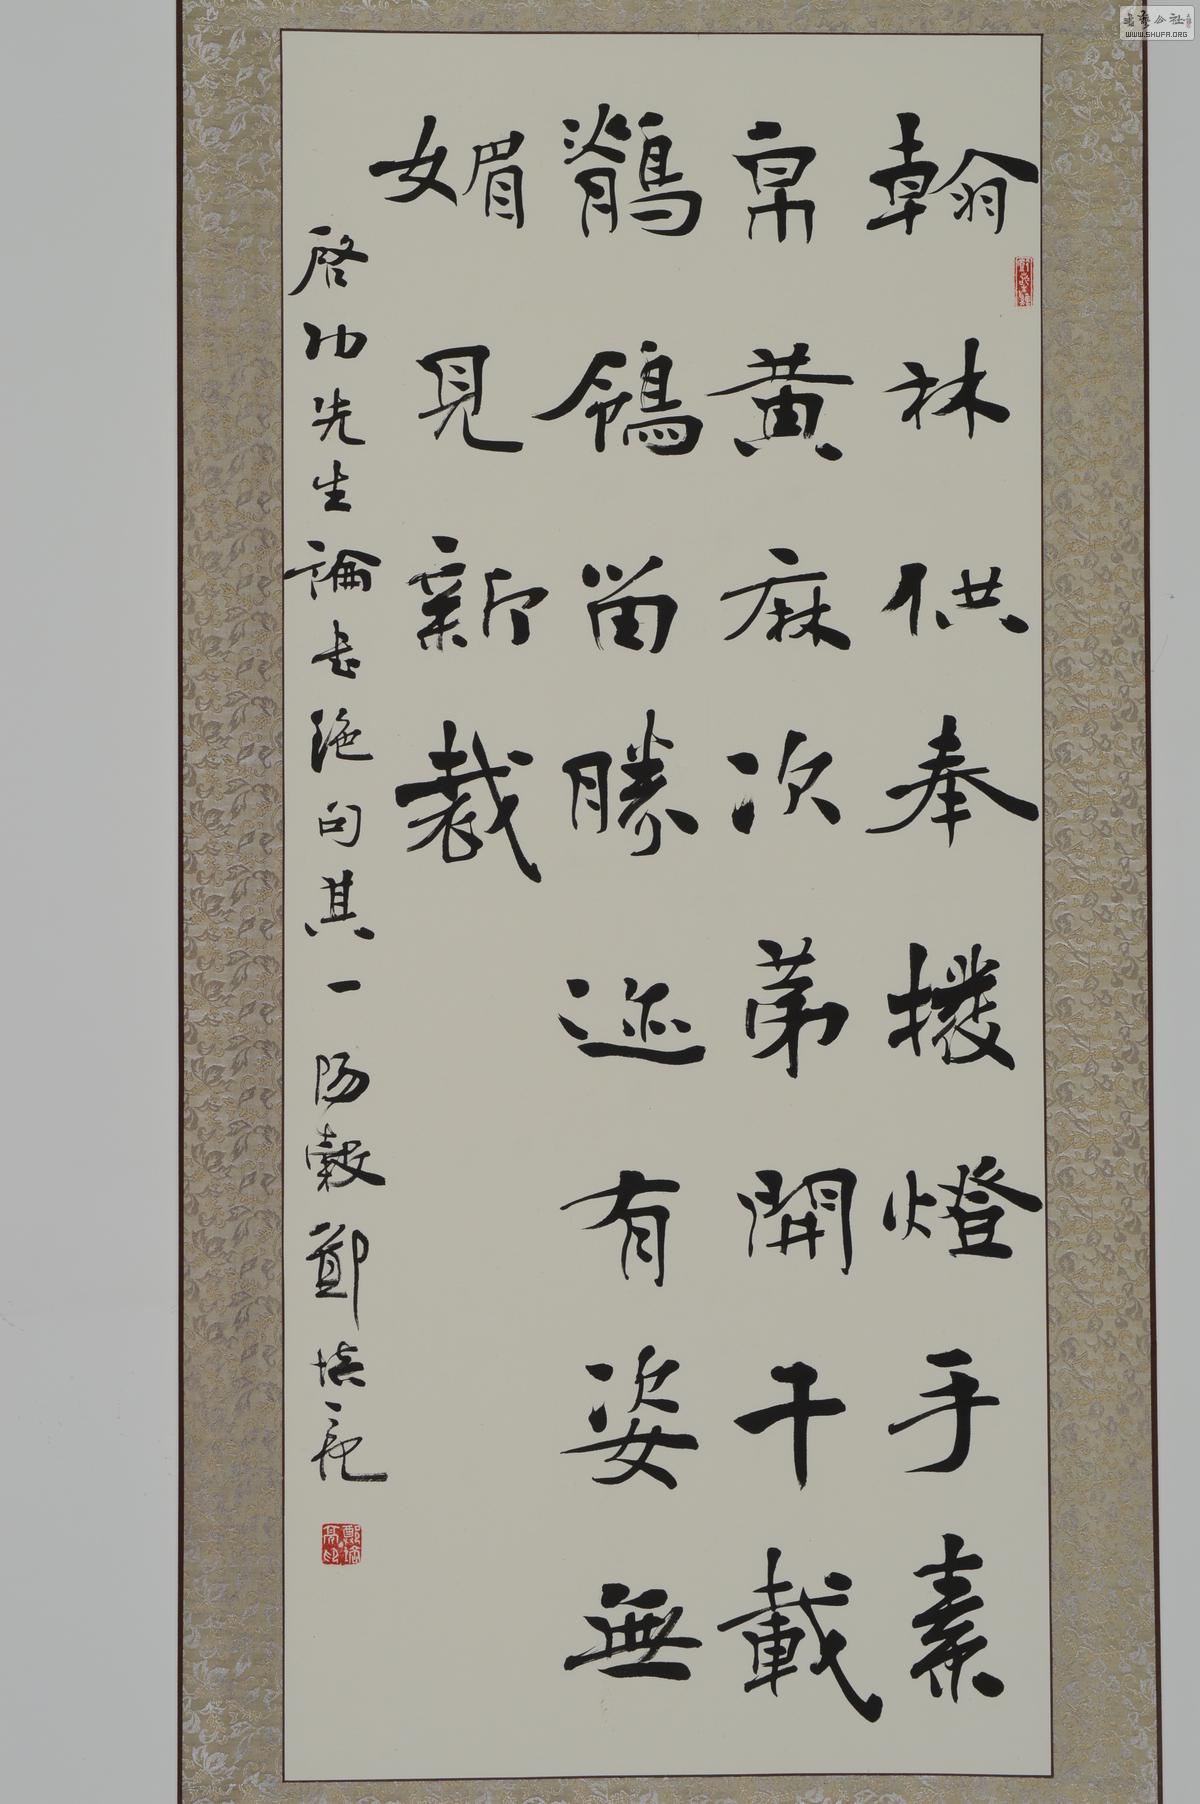 翰林供奉撥燈手素
帛黃麻次第開千載
鶺鴒留勝迹有姿無
媚見新裁
啓功先生論書絕句其一陽穀鄭培亮
書藝公社
WWW.SHUFA.ORG